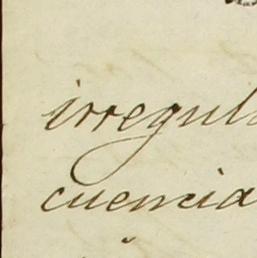 irregul
cuencia